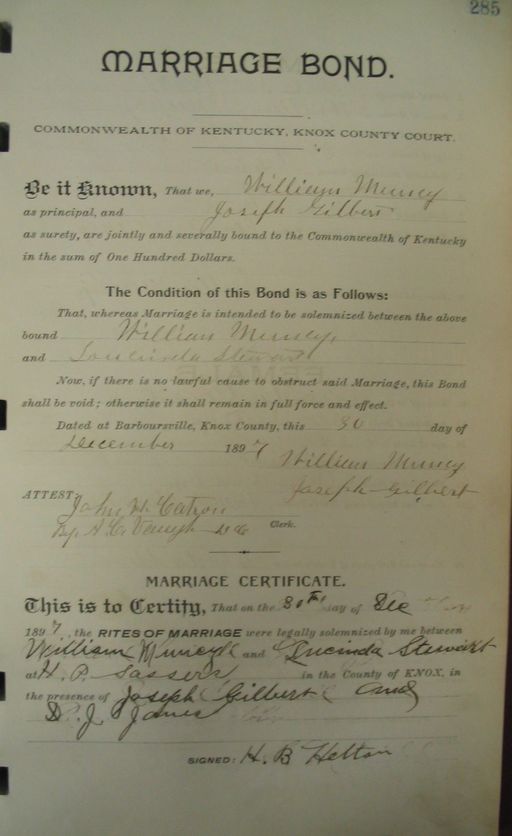 285
MARRIAGE BOND.
COMMONWEALTH OF KENTUCKY, KNOX COUNTY COURT.
Be it Known, That we, William Muncy
as principal, and Joseph Gilbert
as surety, are jointly and severally bound to the Commonwealth of Kentucky
in the sum of One Hundred Dollars.
The Condition of this Bond is as Follows:
That, whereas Marriage is intended to be solemnized between the above
bound William Muncy,
and Stewart
Now, if there is no lawful cause to obstruct said Marriage, this Bond
shall be void; otherwise it shall remain in full force and effect.
Dated at Barboursville, Knox County, this 30 day of
December 1897
William Muncy
Joseph Gilbert
ATTEST:
John W. Catron
By A. C. Clerk.
MARRIAGE CERTIFICATE.
This is to Certify, That on the 30th day of Dec
1897, the RITES OF MARRIAGE were legally solemnized by me between
William and Lucinda Stewart
at H. P. Sassers in the County of KNOX, in
the presence of Joseph Gilbert and
D. J. Jones
SIGNED: H. B Helton